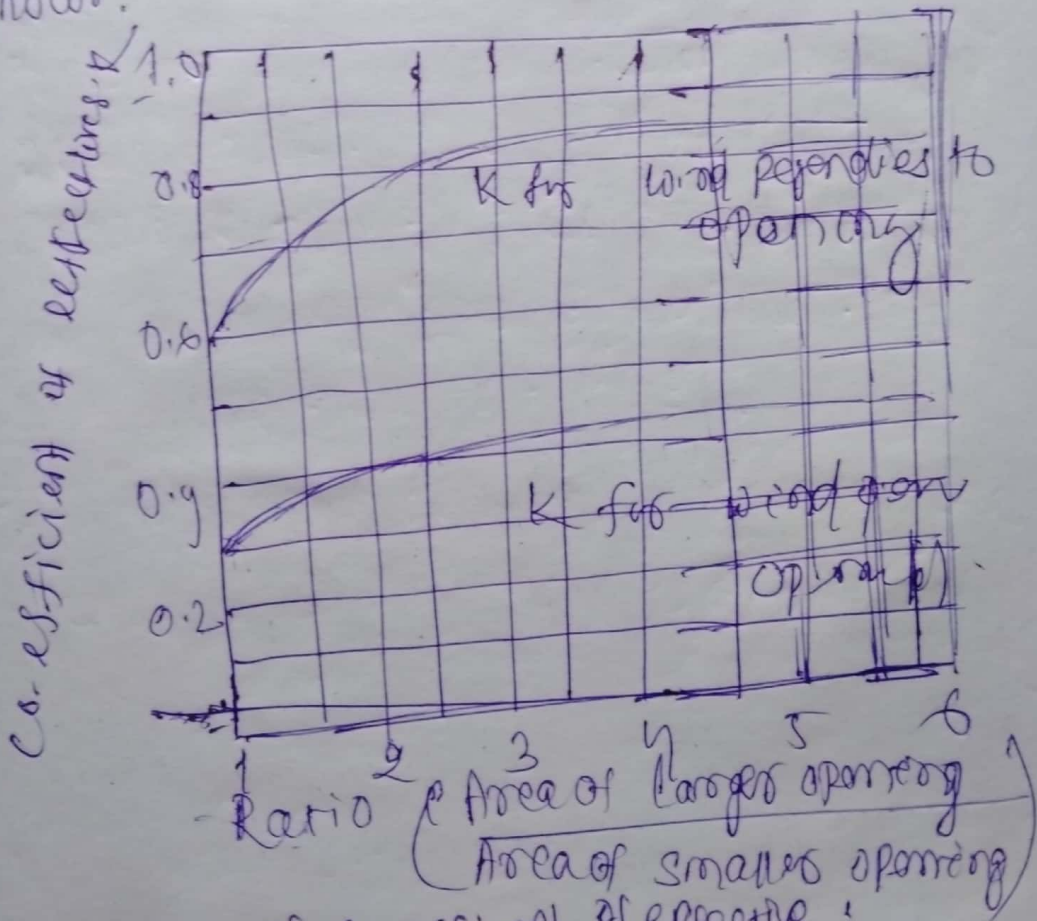 Co-efficient of effectives K
1.0
0.8
K for wind pependies to
opening
0.6
0.4
K for wind
0.2
1 2 3 4 5 6
Ratio ( Area of larger opening
Area of smaller opening )